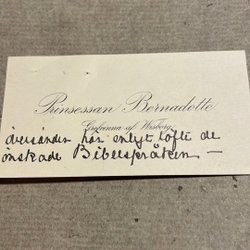 Prinsessan Bernadotte
Grefvinna af Wisborg
översänder här enligt löfte de
önskade Bibelspråken —